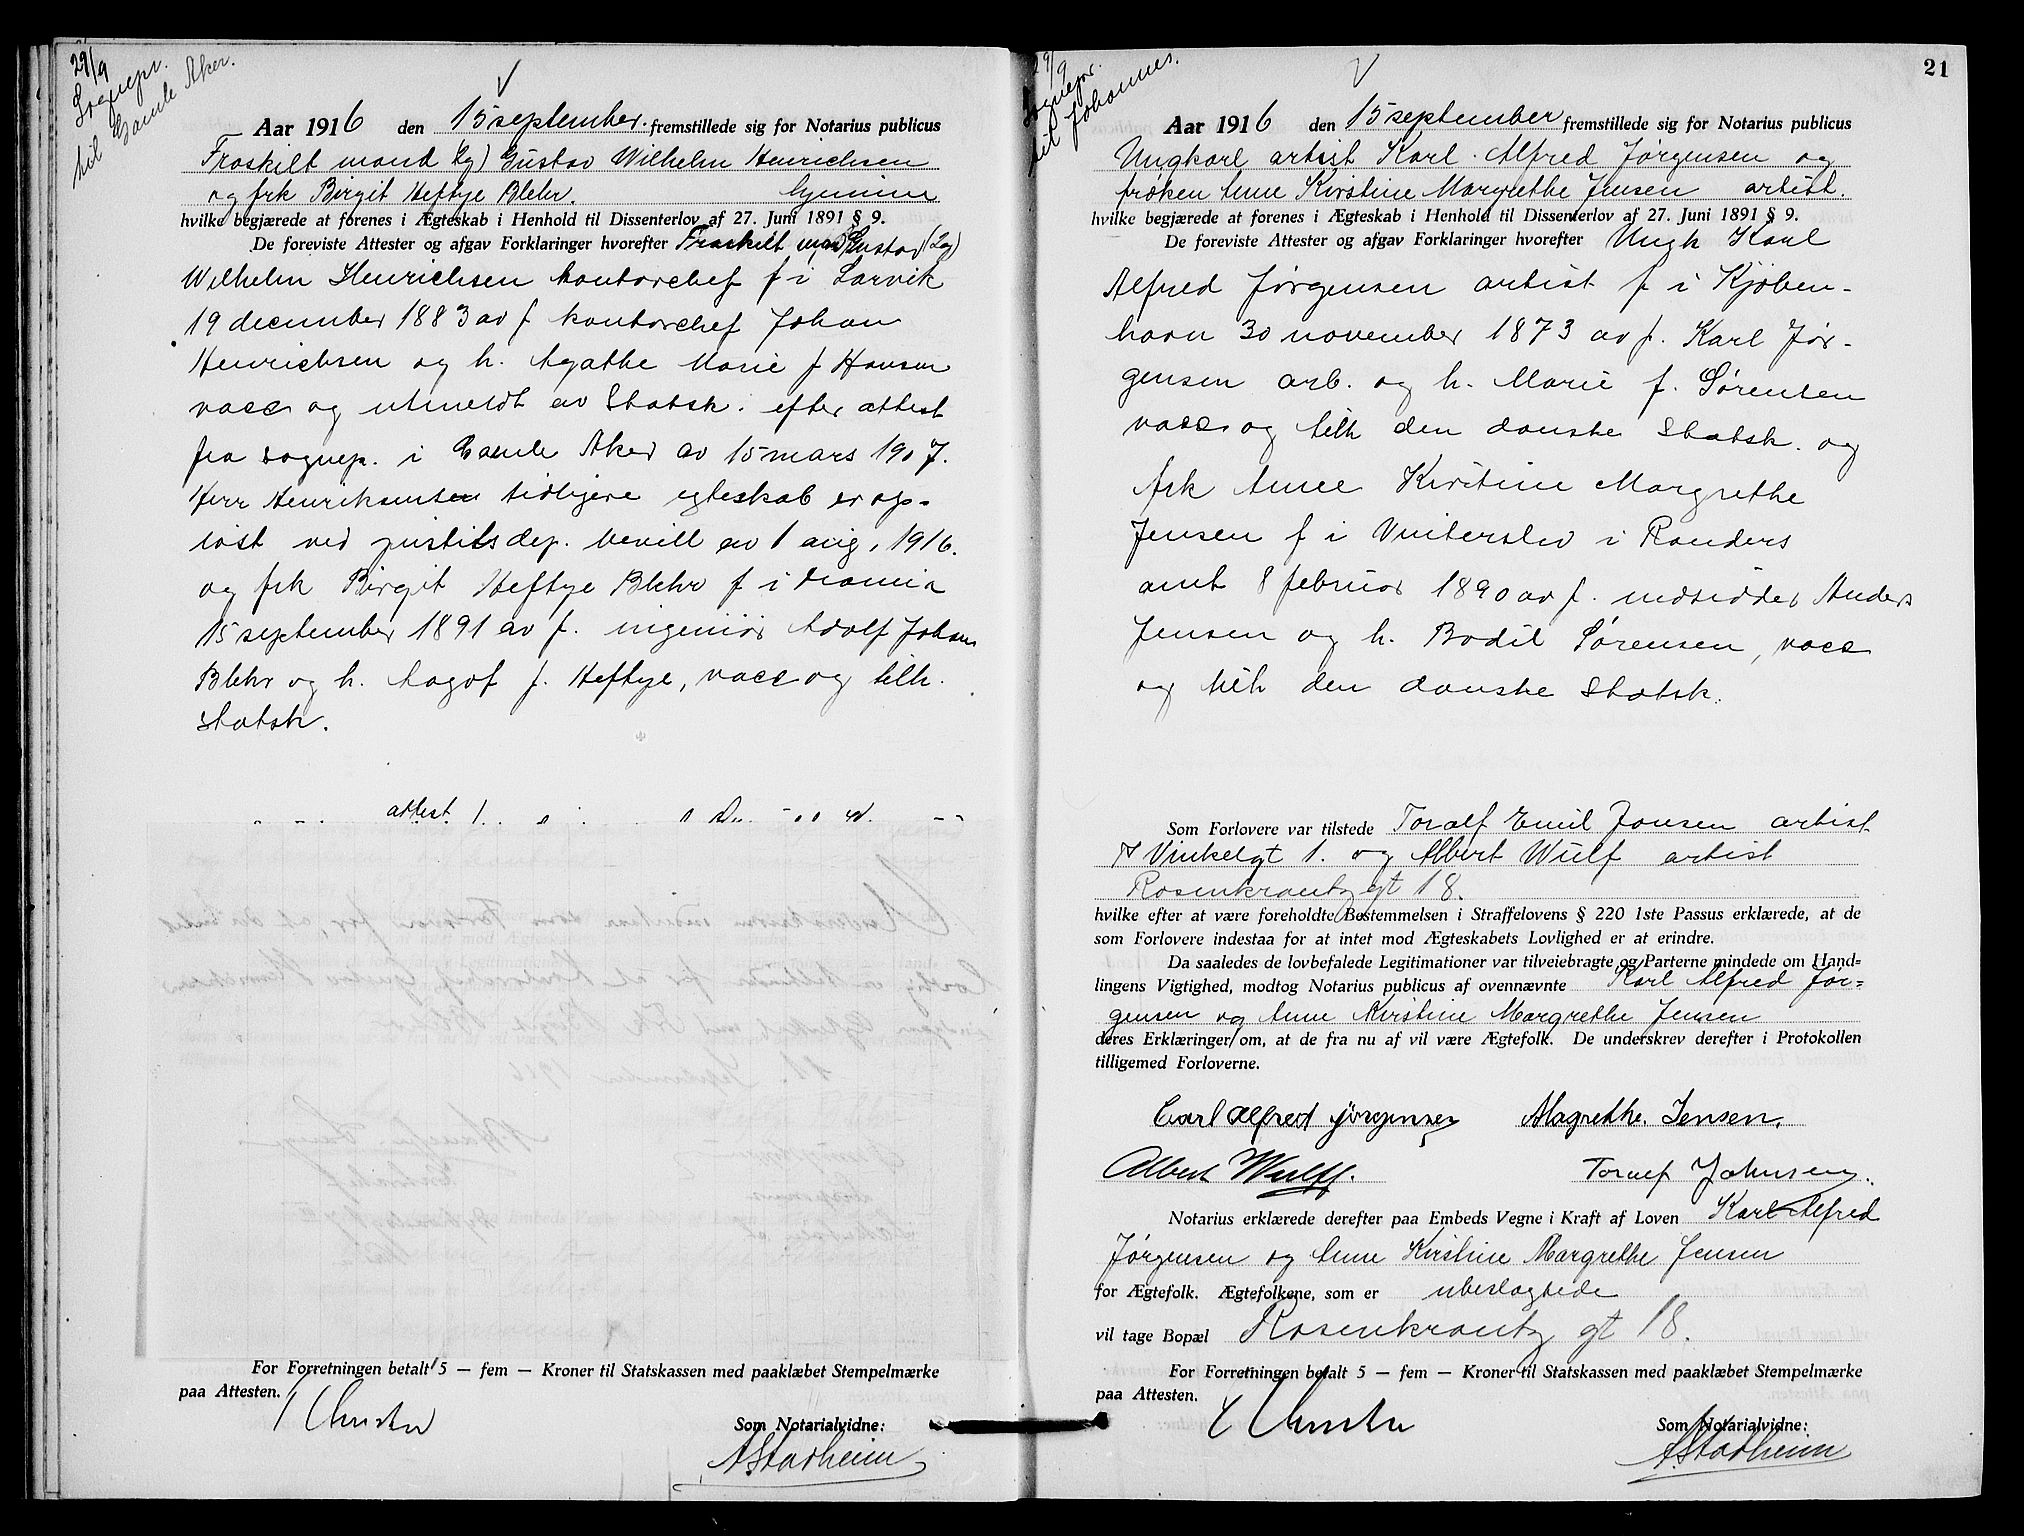 29/9
Sognepr.
til Gamle Aker.
Aar 1916 den 15 september fremstillede sig for Notarius publicus
Fraskilt mand Gustav Wilhelm Henrichsen
og frk Birgit Heftye Blehr.
hvilke begjærede at forenes i Ægteskab i Henhold til Dissenterlov af 27. Juni 1891 § 9.
De foreviste Attester og afgav Forklaringer hvorefter Fraskilt mand Gustav
Wilhelm Henrichsen kontorchef f i Larvik
19 december 1883 av f kontorchef Johan
Henrichsen og h. Agathe Marie f Hansen
vacc og utmeldt av Statsk. efter attest
fra sognep. i Gamle Aker av 15 mars 1907.
Herr Henriksens tidligere egteskab er op-
løst ved justitsdep. bevill av 1 aug. 1916.
og frk Birgit Heftye Blehr f i
15 september 1891 av f. ingeniør Adolf Johan
Blehr og h. Aagot f. Heftye, vacc og tilh.
Statsk.
attest
For Forretningen betalt 5 — fem — Kroner til Statskassen med paaklæbet Stempelmærke
paa Attesten.
Som Notarialvidne:
A Stadheim
21
29/9
Sognepr.
til Johannes.
Aar 1916 den 15 september fremstillede sig for Notarius publicus
Ungkarl artist Karl Alfred Jørgensen og
frøken Anne Kirstine Margrethe Jensen artist.
hvilke begjærede at forenes i Ægteskab i Henhold til Dissenterlov af 27. Juni 1891 § 9.
De foreviste Attester og afgav Forklaringer hvorefter Ungk Karl
Alfred Jørgensen artist f i Kjøben-
havn 30 november 1873 av f. Karl Jør-
gensen arb. og h. Marie f. Sørensen
vacc og tilh den danske Statsk. og
frk Anne Kirstine Margrethe
Jensen f i Vinterslev i Randers
amt 8 februar 1890 av f. indsidder Anders
Jensen og h. Bodil Sørensen, vacc
og tilh den danske Statsk.
Som Forlovere var tilstede Toralf Emil Jansen artist
Vinkelgt 1. og Albert Wulf artist
Rosenkrantz gt 18.
hvilke efter at være foreholdte Bestemmelsen i Straffelovens § 220 1ste Passus erklærede, at de
som Forlovere indestaa for at intet mod Ægteskabets Lovlighed er at erindre.
Da saaledes de lovbefalede Legitimationer var tilveiebragte og Parterne mindede om Hand=
lingens Vigtighed, modtog Notarius publicus af ovennævnte Karl Alfred Jør=
gensen og Anne Kirstine Margrethe Jensen
deres Erklæringer om, at de fra nu af vil være Ægtefolk. De underskrev derefter i Protokollen
tilligemed Forloverne.
Carl Alfred Jörgensen Magrethe. Jensen.
Albert Wulff. Toralf Johnsen.
Notarius erklærede derefter paa Embeds Vegne i Kraft af Loven Karl Alfred
Jørgensen og Anne Kirstine Margrethe Jensen
for Ægtefolk. Ægtefolkene, som er ubeslagtede
vil tage Bopæl Rosenkrantz gt 18.
For Forretningen betalt 5 — fem — Kroner til Statskassen med paaklæbet Stempelmærke
paa Attesten.
Som Notarialvidne:
A Stadheim